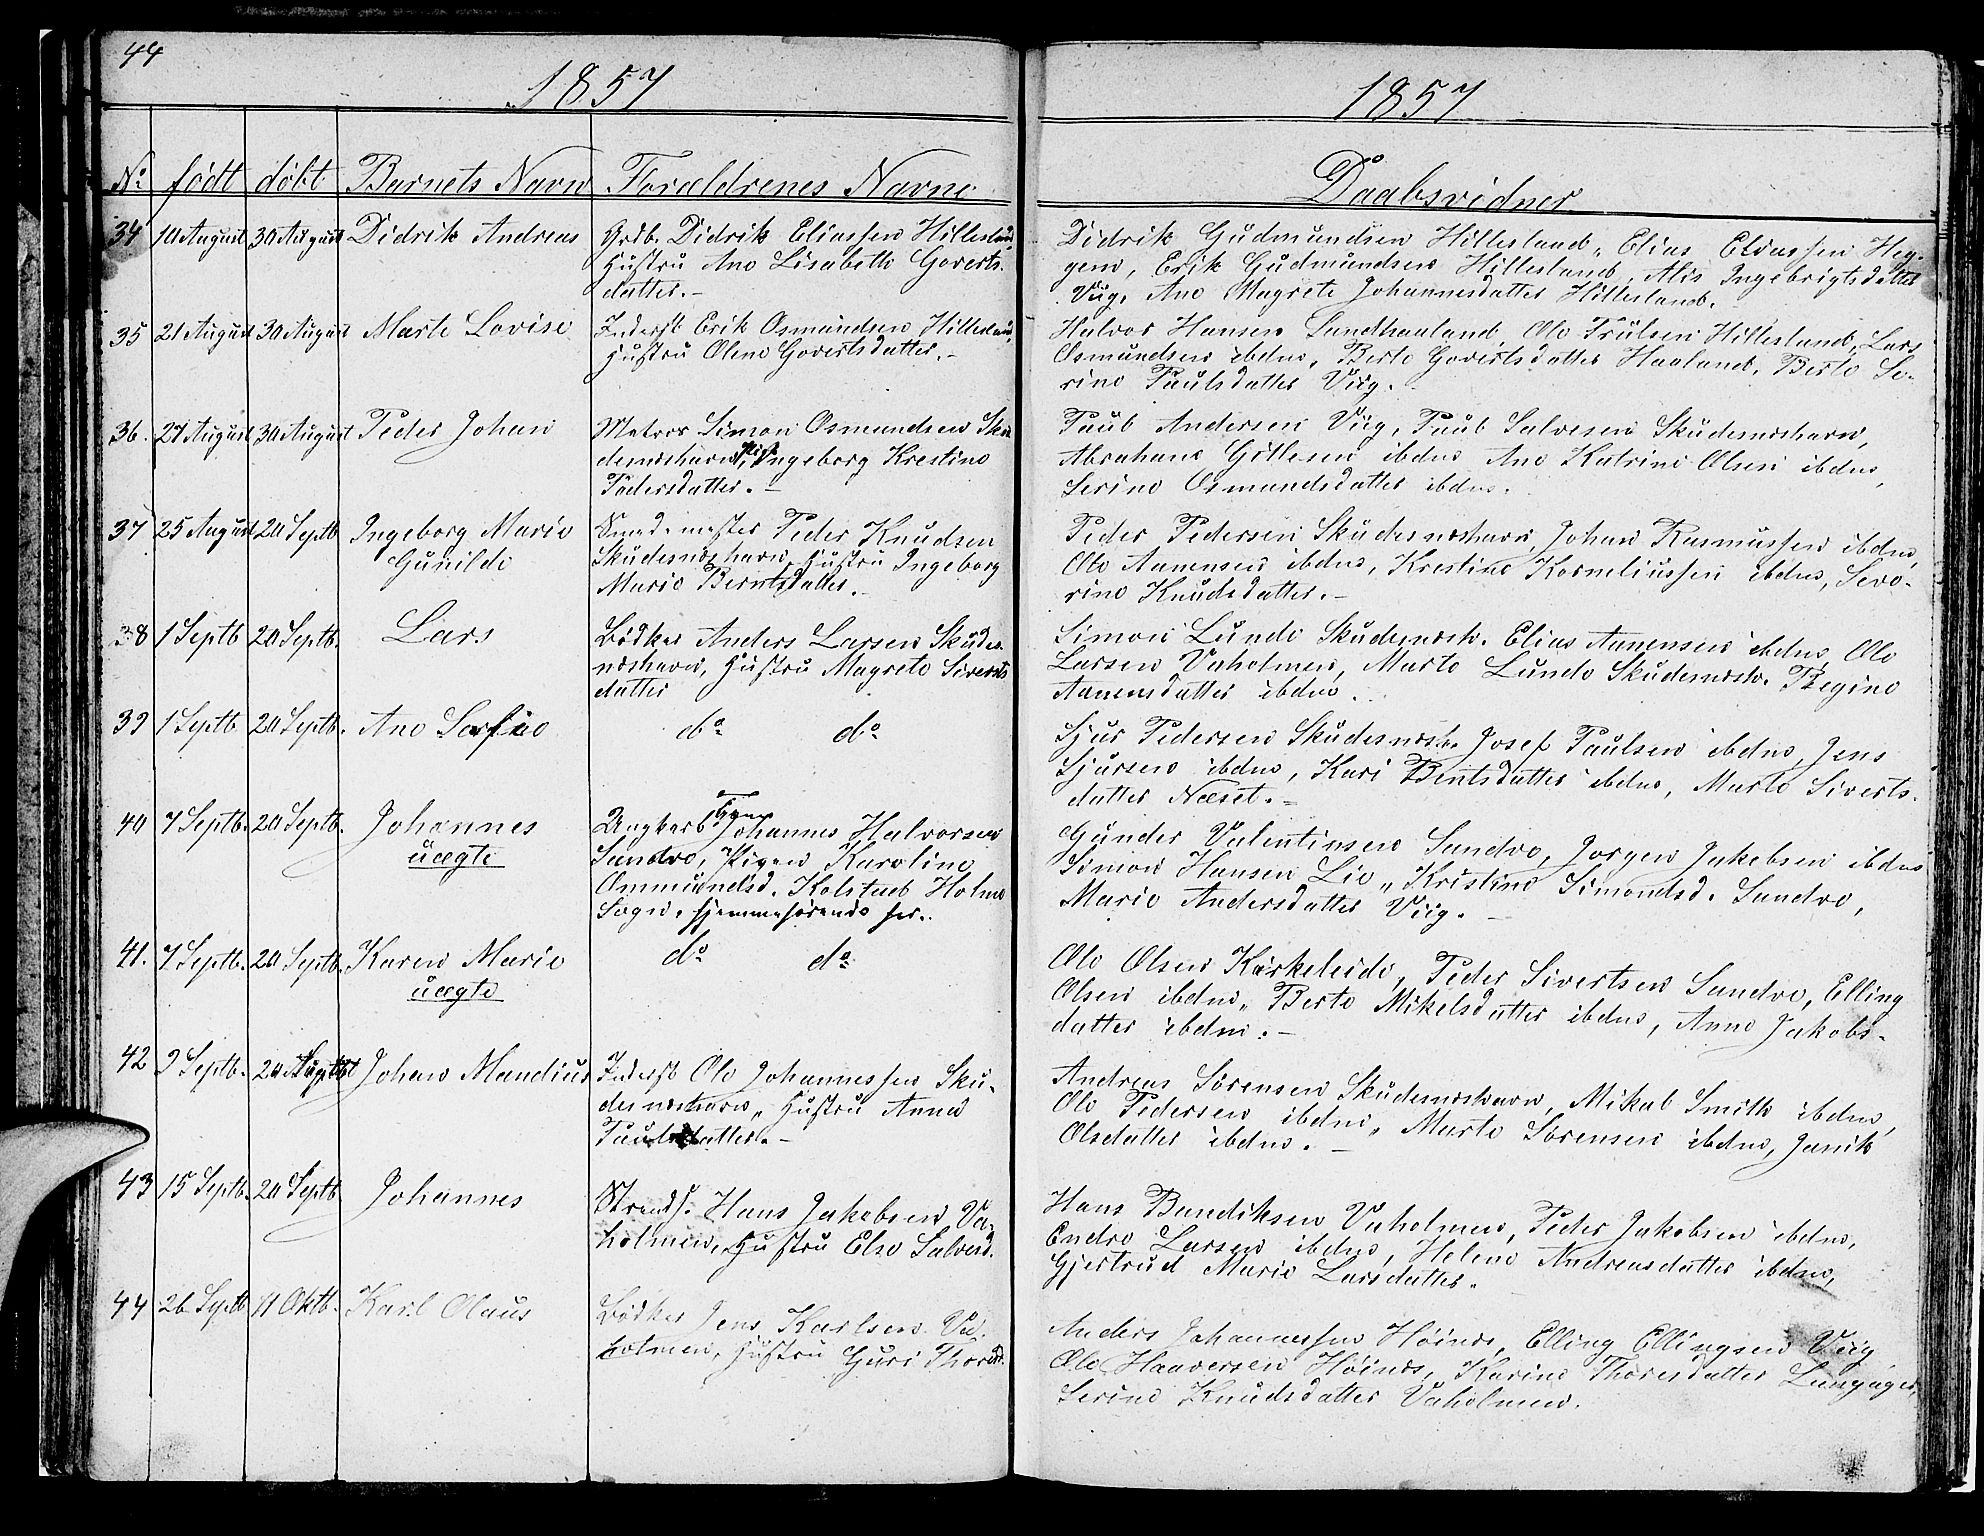 44
1857
No født døbt Barnets Navn Forældrenes Navne
34 10 August 30 August Didrik Andreas Grdb. Didrik Eliassen Hillesland,
Hustru Ane Lisabeth Goverts-
datter.-
35 21 August 30 August Marte Lovise Inderst Erik Osmundsen Hillesland,
Hustru Olene Govertsdatter.-
36. 27 August 30 August Peder Johan Matros Simon Osmundsen Sku
desneshavn, Ingeborg Krestine
Pedersdatter.-
37 25 August 20 Septb Ingeborg Marie Smedemester Peder Knudsen
Gunilde Skudesneshavn, Hustru Ingeborg
Marie Berntsdatter.
38 1 Septb 20 Septb. Lars Bødker Anders Larsen Skudes
neshavn, Hustru Magrete Siverts
datter
39 1 Septb 20 Septb. Ane Serfine do do
40 7 Septb. 20 Septb. Johannes Ungkarl Johannes Halvorsen
uægte Sandve, Pigen Karoline
Ommundsd. Kolstueb Holme
Sogn, hjemmehørende her.
41. 7 Septb. 20 Septb. Karen Marie do do
uægte
42 9 Septb. 20 Septb Johan Mandius Inderst Ole Johannessen Sku-
desneshavn, Hustru Anna
Paulsdatter.-
43 15 Septb. 20 Septb Johannes Strands. Hans Jakobsen Va-
holmen, Hustru Else Salvesd.
44 26 Septb 11 Oktb. Karl Olaus Bødker Jens Karlsen Va-
holmen, Hustru Guri Thoresd.
1857
Daabsvidner
Didrik Gudmundsen Hillesland, Elias Eliassen Hey-
gem, Erik Gudmundsen Hillesland, Alis Ingebrigtsdatter
Viig, Ane Magrete Johannesdatter Hillesland.
Halvor Hansen Sundhauland, Ole Trulsen Hillesland, Lars
Osmundsen ibdm, Berte Govertsdatter Haaland, Berte Se-
rine Paulsdatter Viig.
Paul Andersen Viig, Paul Salvesen Skudesneshavn,
Abraham Gillesen ibdm Ane Katrine Olsen ibdm,
Serine Osmundsdatter ibdm.
Peder Pedersen Skudesneshavn, Johan Rasmussen ibdm,
Ole Aanensen ibdm, Krestine Korneliussen ibdm, Seve-
rine Knudsdatter.-
Simon Lunde Skudesnesh. Elias Aanensen ibdm, Ole
Larsen Vaholmen, Marte Lunde Skudesnesh. Regine
Aanensdatter ibdm.
Sjur Pedersen Skudesnesh. Josef Paulsen ibdm, Jens
Sjursen ibdm, Kari Bentsdatter ibdm, Marte Siverts-
datter Neset.-
Gunder Valentinsen Sandve, Jorgen Jakobsen ibdm
Simon Hansen Lie, Kristine Simonsd. Sandve,
Marie Andersdatter Viig.-
Ole Olsen Kirkeleide, Peder Sivertsen Sandve, Elling
Olsen ibdm, Berte Mikelsdatter ibdm, Anne Jakobs-
datter ibdm.-
Andreas Sørensen Skudesneshavn, Mikal Smith ibdm,
Ole Pedersen ibdm, Marte Sørensen ibdm, Janik
Olsdatter ibdm.-
Hans Bendiksen Vaholmen, Peder Jakobsen ibdm,
Endre Larsen ibdm, Helene Andreasdatter ibdm,
Gjertrud Marie Larsdatter.
Anders Johannessen Høines, Elling Ellingsen Viig
Ole Haaversen Høines, Karine Thoresdatter Langåger,
Serine Knudsdatter Vaholmen.